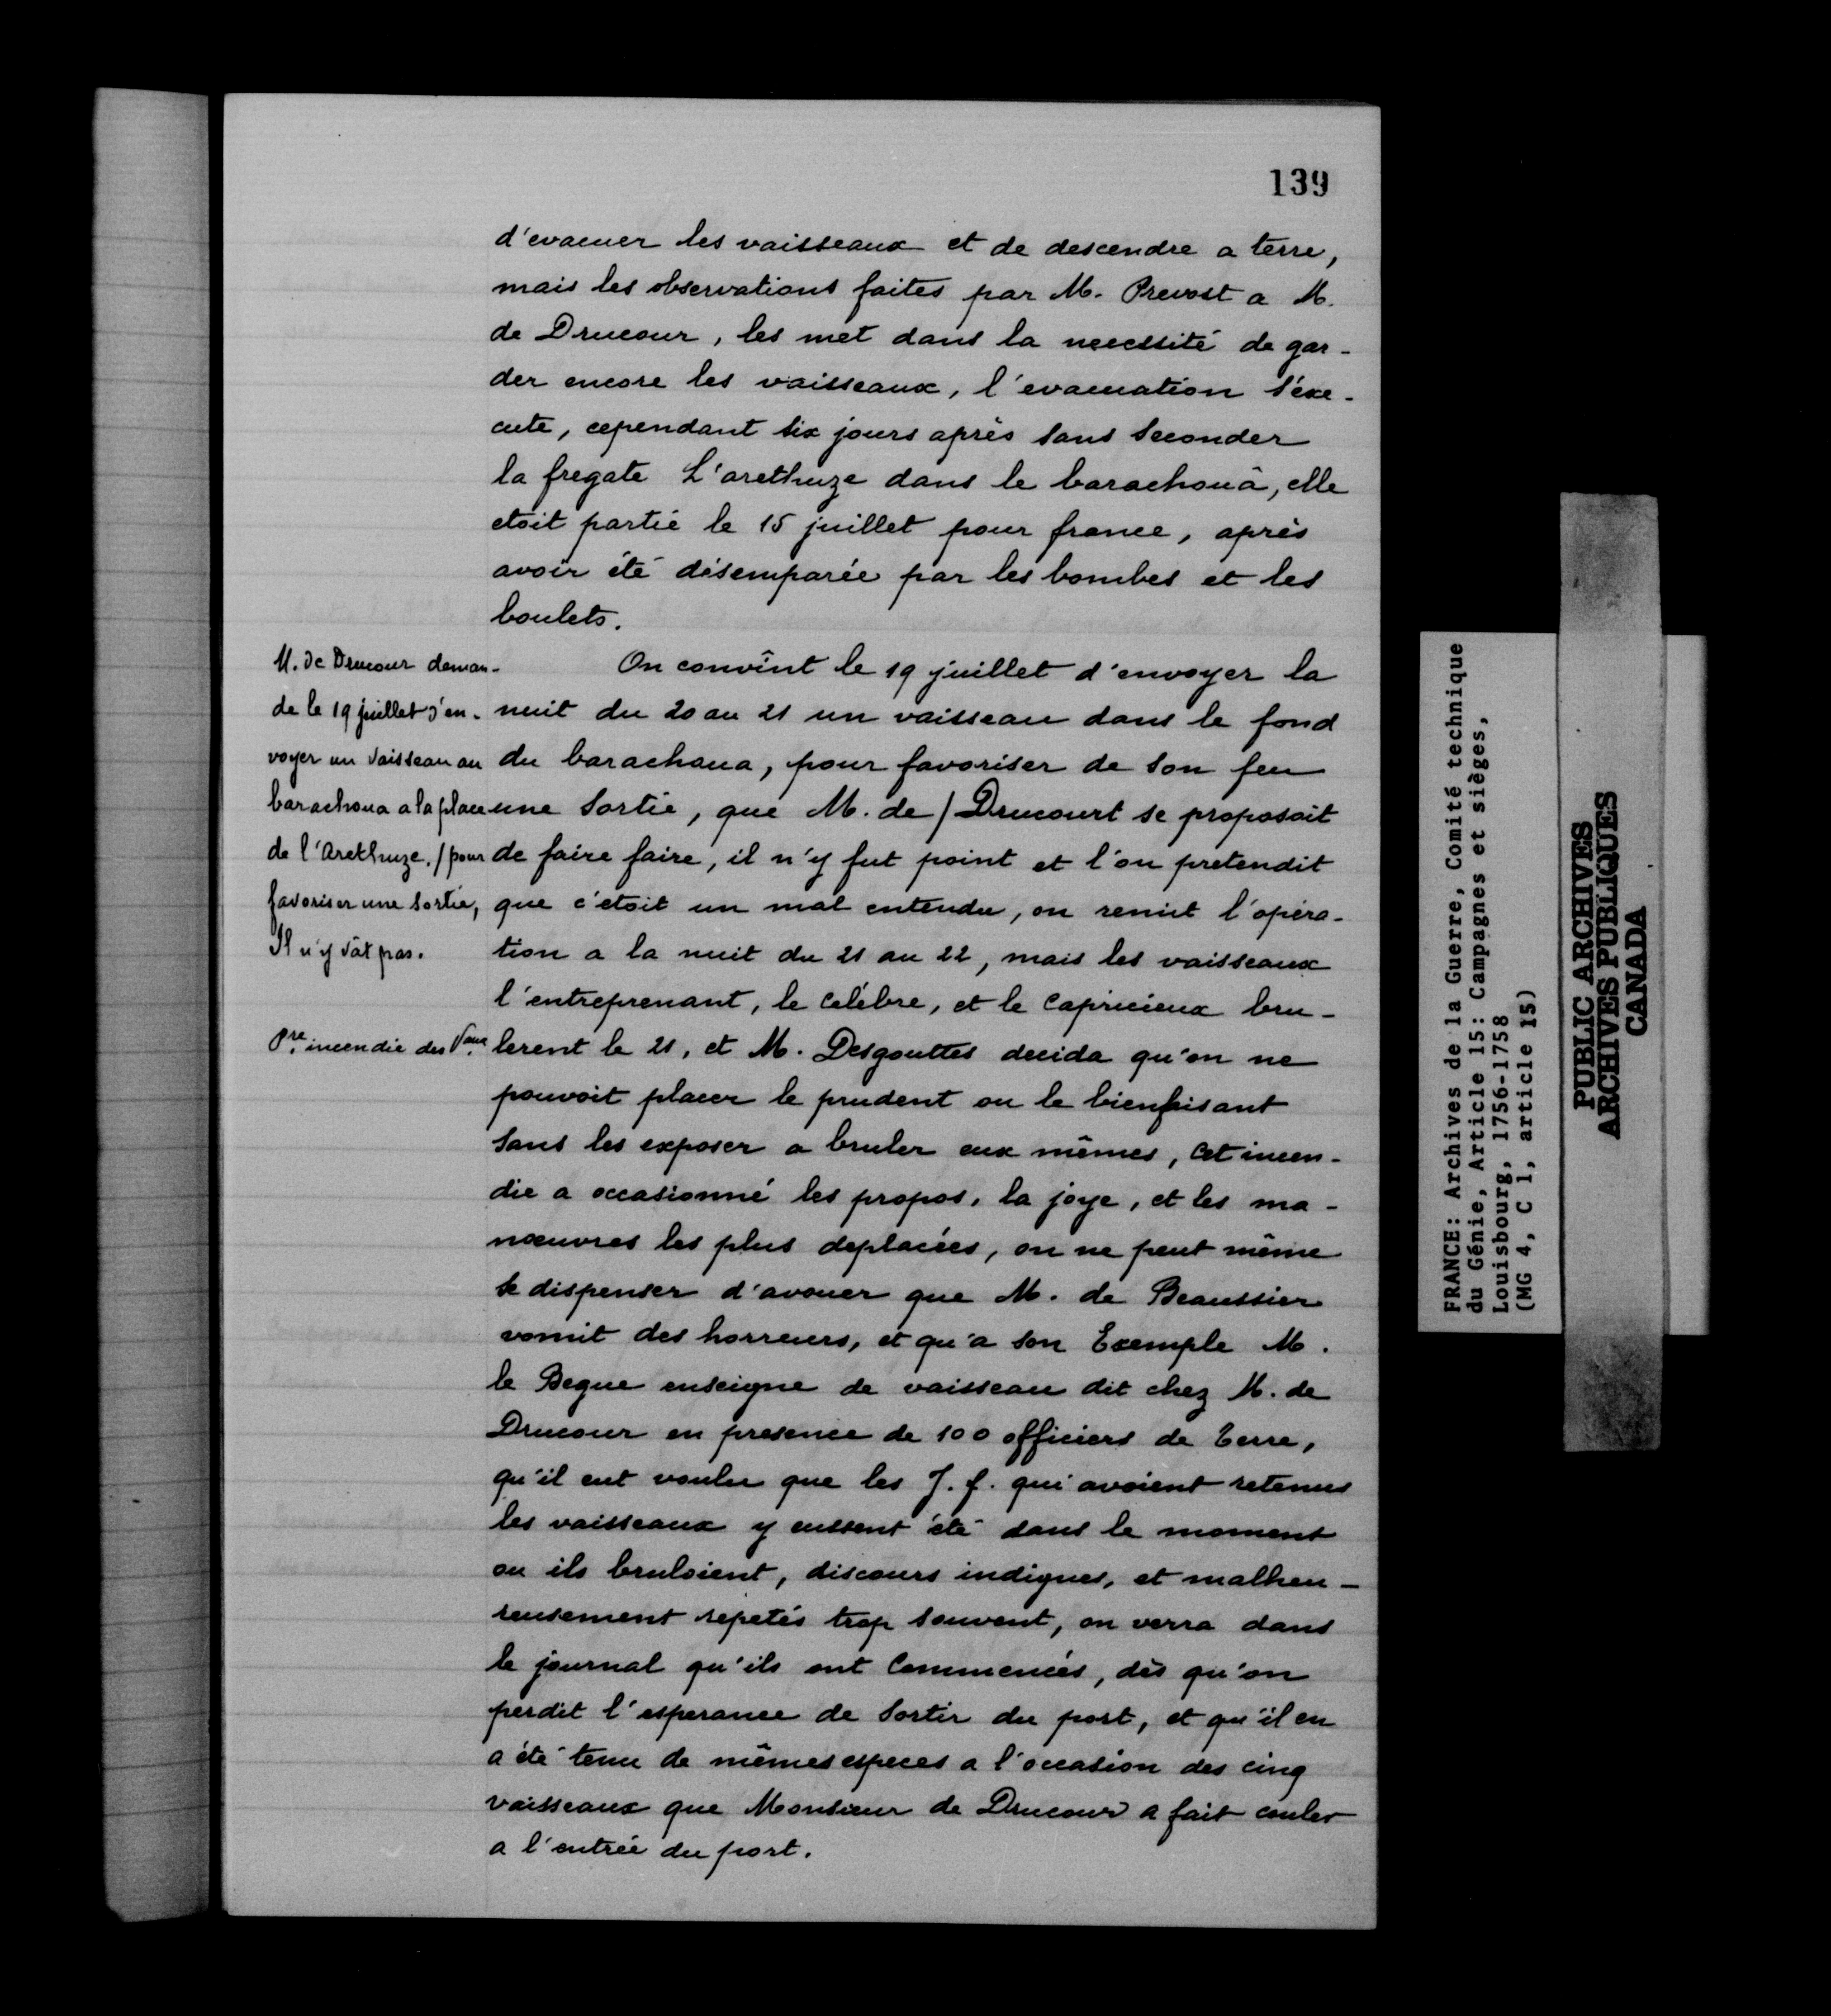 139
d'evacuer les vaisseaux et de descendre a terre,
mais les observations faites par M. Prevost a M.
de Drucour, les met dans la necessité de gar-
der encore les vaisseaux, l'evacuation s'exe-
cute, cependant six jours après sans seconder
la fregate L'arethuze dans le barachouâ, elle
etoit partie le 15 juillet pour france, après
avoir été désemparée par les bombes et les
boulets.
M. de Drucour deman-
de le 19 juillet d'en-
voyer un vaisseau au
barachoua a la place
de l'Arethuze, / pour
favoriser une sortie,
Il n'y vât pas.
On convînt le 19 juillet d'envoyer la
nuit du 20 au 21 un vaisseau dans le fond
du barachaua, pour favoriser de son feu
une sortie, que M. de / Drucourt se proposait
de faire faire, il n'y fut point et l'on pretendit
que c'etoit un mal entendu, on remit l'opéra-
tion a la nuit du 21 au 22, mais les vaisseaux
l'entreprenant, le celébre, et le capricieux bru-
Pre. incendie des Vaux.
lerent le 21, et M. Desgouttes decida qu'on ne
pouvoit placer le prudent ou le bienfaisant
sans les exposer a bruler eux mêmes, cet incen-
die a occasionné les propos, la joye, et les ma-
nœuvres les plus deplacées, on ne peut même
se dispenser d'avouer que M. de Beaussier
vomit des horreurs, et qu'a son Exemple M.
le Begue enseigne de vaisseau dit chez M. de
Drucour en presence de 100 officiers de terre,
qu'il eut voulu que les J. f. qui avoient retenus
les vaisseaux y eussent été dans le moment
ou ils bruloient, discours indignes, et malheu-
reusement repetés trop souvent, on verra dans
le journal qu'ils ont commencés, dès qu'on
perdit l'esperance de sortir du port, et qu'il en
a été tenu de mêmes especes a l'occasion des cinq
vaisseaux que Monsieur de Drucour a fait couler
a l'entrée du port.
FRANCE: Archives de la Guerre, Comité technique
du Génie, Article 15: Campagnes et sièges,
Louisbourg, 1756-1758
(MG 4, C 1, article 15)
PUBLIC ARCHIVES
ARCHIVES PUBLIQUES
CANADA